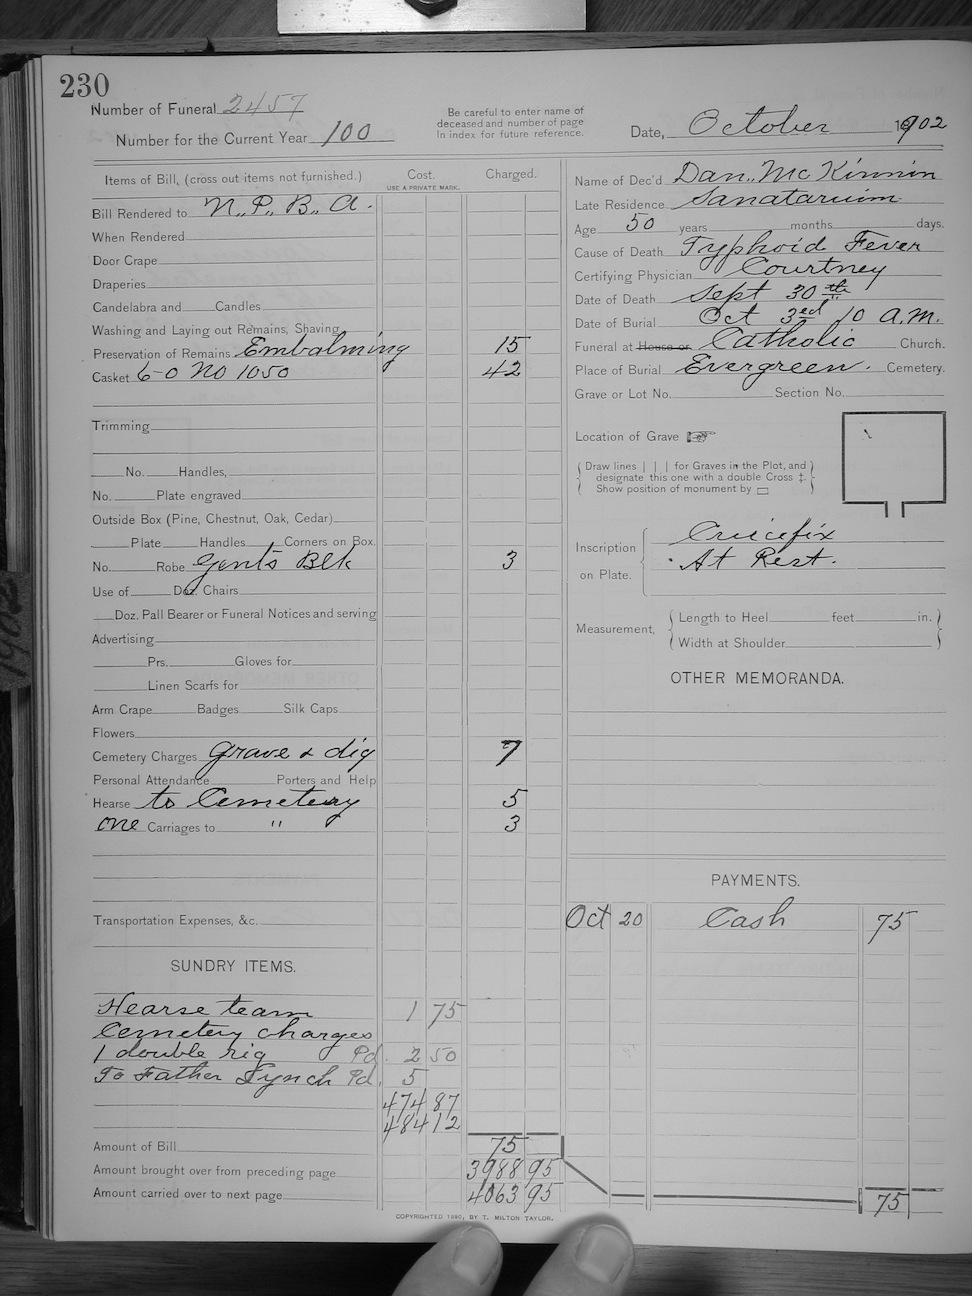 230
Number of Funeral 2457
Number for the Current Year 100
Be careful to enter name of
deceased and number of page
In index for future reference.
Date, October 1902
Items of Bill, (cross out items not furnished.) Cost. Charged.
USE A PRIVATE MARK.
Bill Rendered to N. P. B. A.
When Rendered
Door Crape
Draperies
Candelabra and Candles
Washing and Laying out Remains, Shaving
Preservation of Remains Embalming 15
Casket 6-0 No 1050 42
Trimming
No. Handles,
No. Plate engraved
Outside Box (Pine, Chestnut, Oak, Cedar)
Plate Handles Corners on Box.
No. Robe Gents Blk 3
Use of Doz. Chairs
Doz. Pall Bearer or Funeral Notices and serving
Advertising
Prs. Gloves for
Linen Scarfs for
Arm Crape Badges Silk Caps
Flowers
Cemetery Charges Grave & dig 7
Personal Attendance Porters and Help
Hearse to Cemetery 5
one Carriages to " 3
Transportation Expenses, &c.
SUNDRY ITEMS.
Hearse team 1 75
Cemetery charges
1 double rig Pd. 2 50
To Father Lynch Pd. 5
474 87
484 12
Amount of Bill 75
Amount brought over from preceding page 3988 95
Amount carried over to next page 4063 95
COPYRIGHTED 1890, BY T. MILTON TAYLOR.
Name of Dec'd Dan. McKinnin
Late Residence Sanatarium
Age 50 years months days.
Cause of Death Typhoid Fever
Certifying Physician Courtney
Date of Death Sept 30th
Date of Burial Oct 3ed 10 A.M.
Funeral at House or Catholic Church.
Place of Burial Evergreen. Cemetery.
Grave or Lot No. Section No.
Location of Grave
Draw lines | | | for Graves in the Plot, and
designate this one with a double Cross ‡.
Show position of monument by ▭
Inscription on Plate. Crucifix
At Rest.
Measurement, Length to Heel feet in.
Width at Shoulder
OTHER MEMORANDA.
PAYMENTS.
Oct 20 Cash 75
75
1902